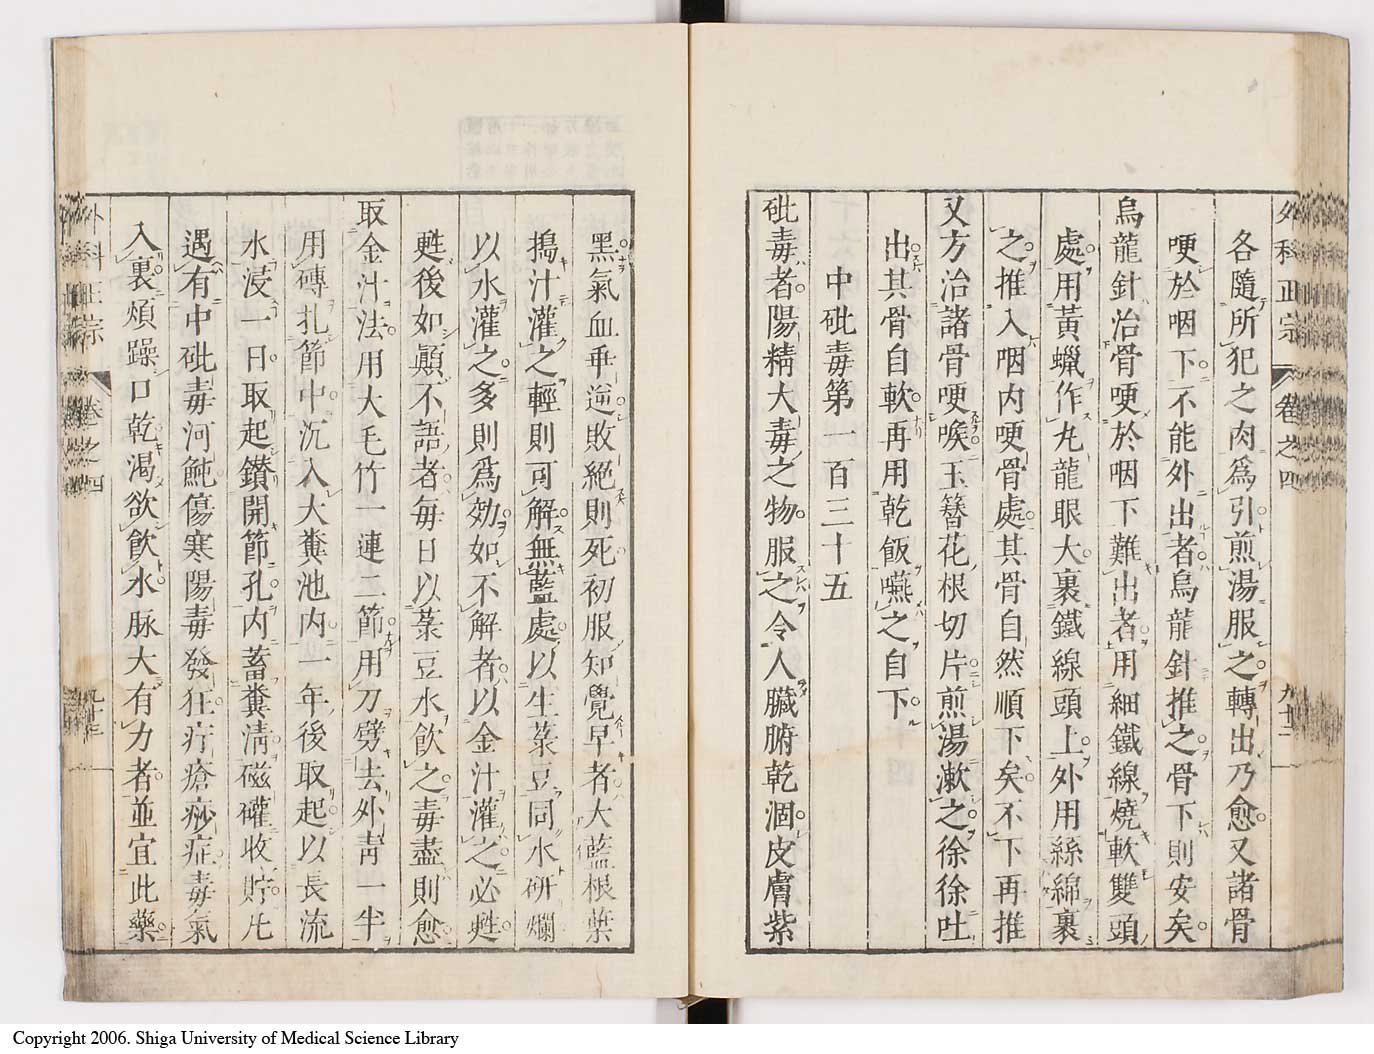 外科正宗 卷之四 九十二
各隨所犯之肉爲引煎湯服之轉出乃愈又諸骨
哽於咽下不能外出者烏龍針推之骨下則安矣
烏龍針治骨哽於咽下難出者用細鐵線燒軟雙頭
處用黃蠟作丸龍眼大裏鐵線頭上外用絲綿裏
之推入咽内哽骨處其骨自然順下矣不下再推
又方治諸骨哽喉玉簪花根切片煎湯漱之徐徐吐
出其骨自軟再用乾飯嚥之自下
中砒毒第一百三十五
砒毒者陽精大毒之物服之令人臟腑乾涸皮膚紫
黑氣血垂逆敗絕則死初服知覺早者大藍根葉
搗汁灌之輕則可解無藍處以生菉豆同水研爛
以水灌之多則爲効如不解者以金汁灌之必甦
甦後如顚不語者每日以菉豆水飲之毒盡則愈
取金汁法用大毛竹一連二節用刀劈去外靑一半
用磚扎節中沉入大糞池内一年後取起以長流
水浸一日取起鑚開節孔内蓄糞淸磁罐收貯凡
遇有中砒毒河魨傷寒陽毒發狂疔瘡痧症毒氣
入裏煩躁口乾渴欲飮水脉大有力者並宜此藥
外科正宗 卷之四 九十三
Copyright 2006. Shiga University of Medical Science Library